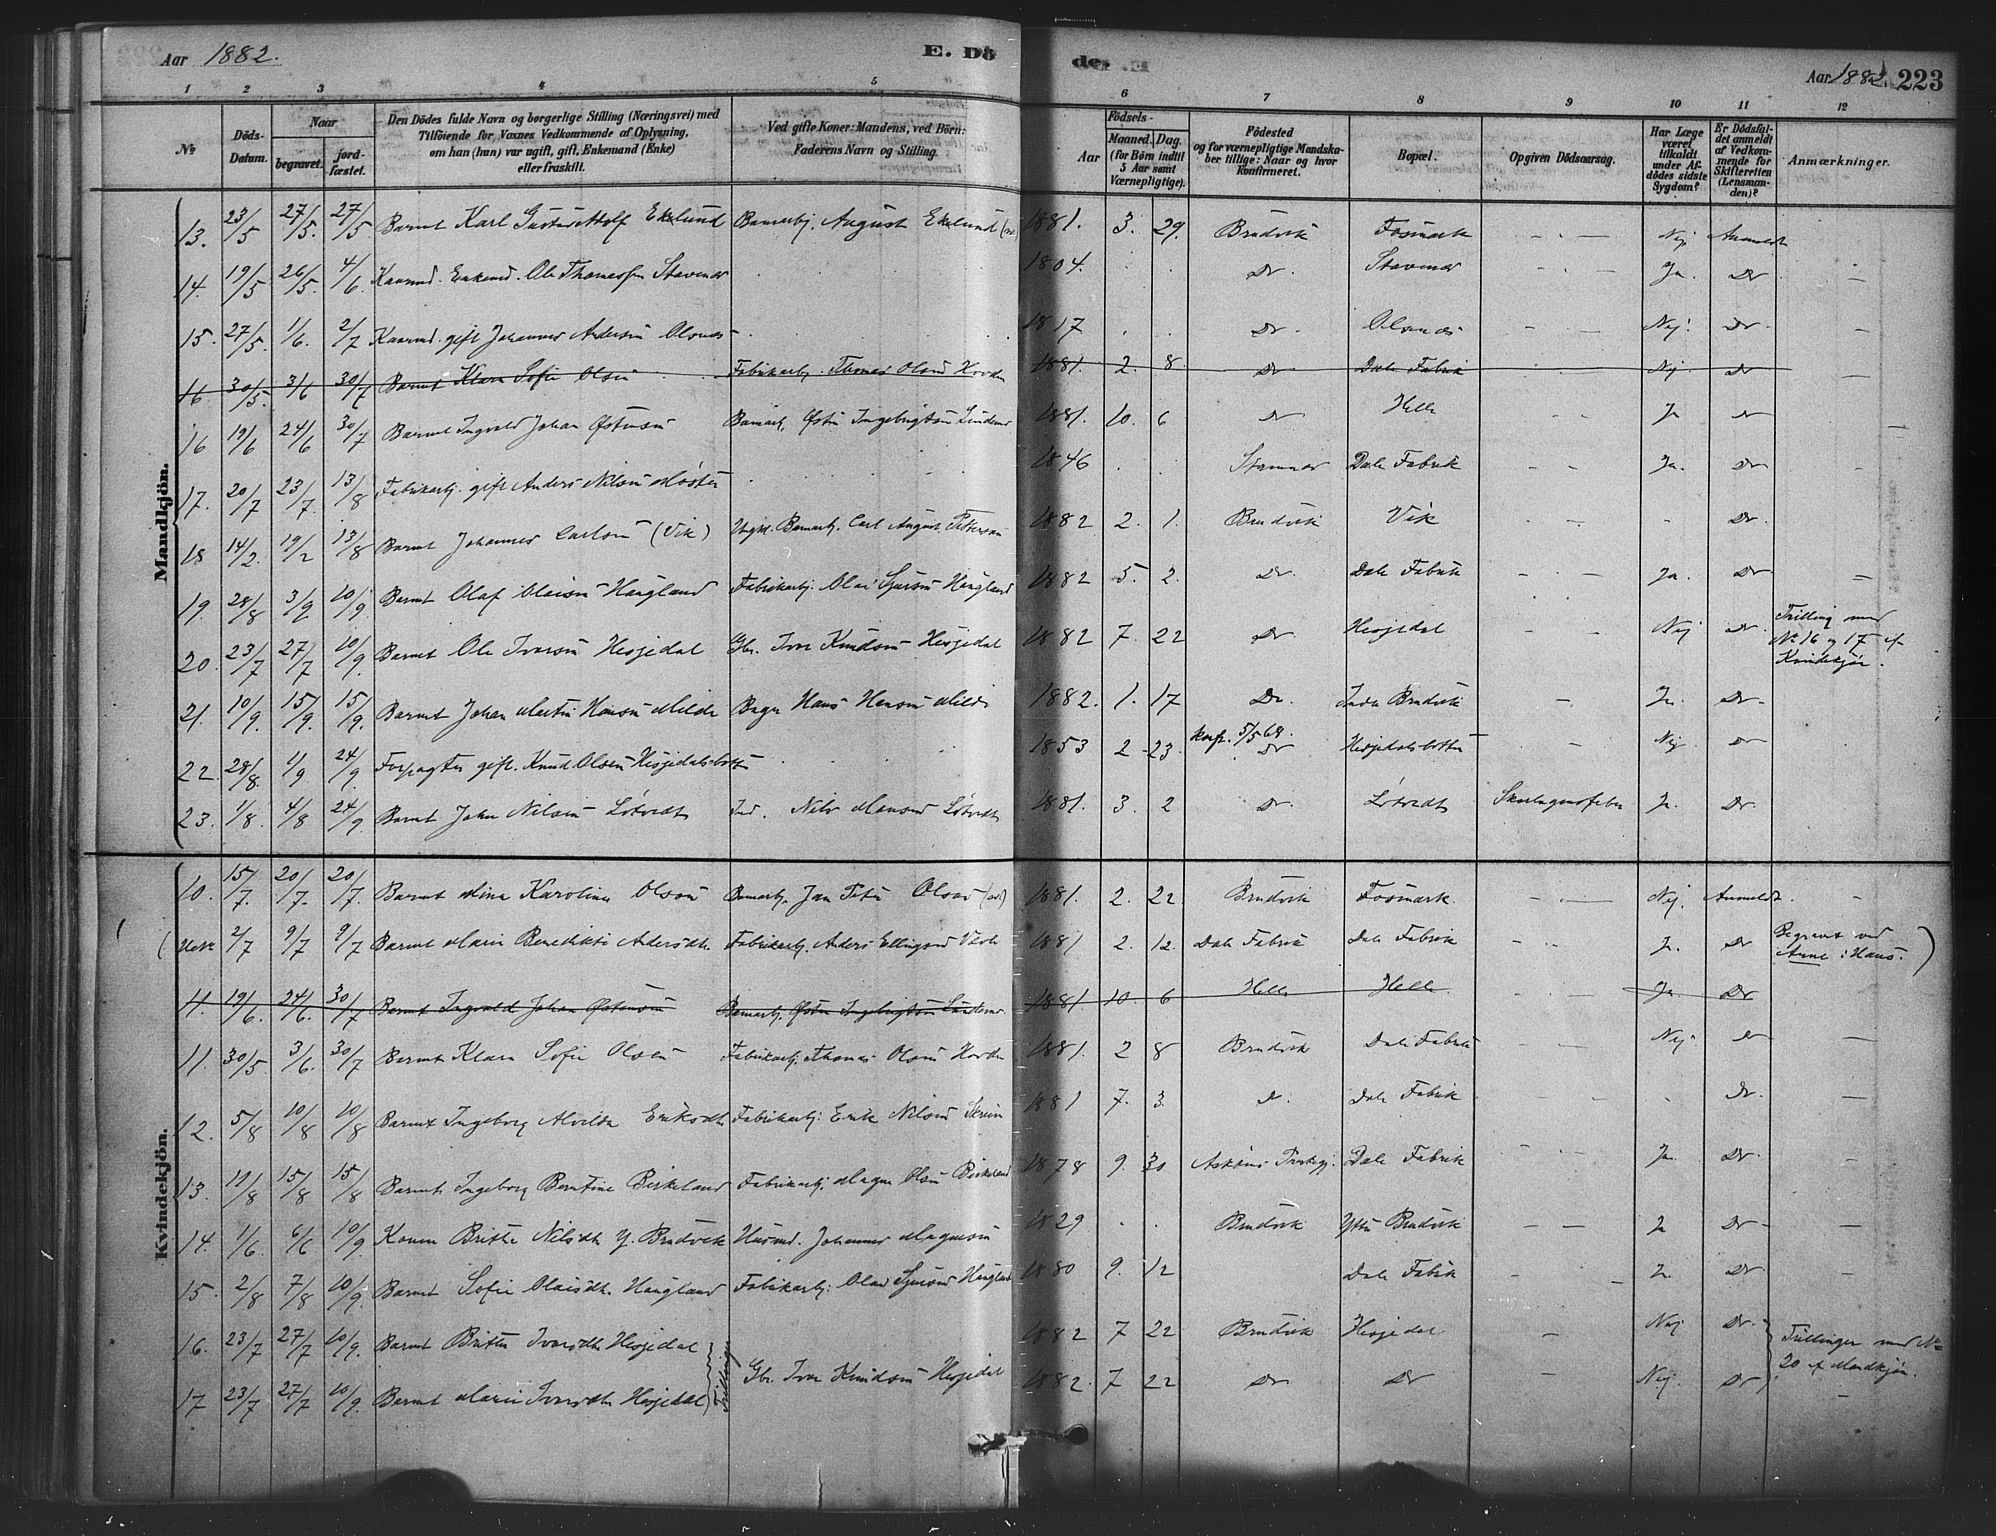 Aar 1882. E. Dö de. Aar 1882. 223
1 2 3 4 5 6 7 8 9 10 11 12
№ Döds-Datum. Naar begravet. jord-fæstet. Den Dödes fulde Navn og borgerlige Stilling (Næringsvei) med Tilföiende for Voxnes Vedkommende af Oplysning, om han (hun) var ugift, gift, Enkemand (Enke) eller fraskilt. Ved gifte Koner: Mandens, ved Börn: Faderens Navn og Stilling. Födsels- Aar Maaned. Dag. (for Börn indtil 5 Aar samt Værnepligtige). Födested og for værnepligtige Mandska-ber tillige: Naar og hvor konfirmeret. Bopæl. Opgiven Dödsaarsag. Har Læge været tilkaldt under Af-dödes sidste Sygdom? Er Dödsfal-det anmeldt af Vedkom-mende for Skifteretten (Lensman-den)? Anmærkninger.
Mandkjön.
13. 23/5 27/5. 27/5 Barnet Karl Gustav Adolf Eklund Banearbj. August Eklund 1881. 3. 29. Brudvik Fosmark - - Nej Anmeldt
14. 19/5 26/5. 4/6. Kaarmd. Enkemd. Ole Thomassen Stavenes 1804. Do. Stavenes - - Ja Do -
15. 27/5. 1/6. 2/7 Kaarmd. gift Johannes Andersen Olsnes 1817 Do. Olsnes - - Nej. Do. -
16. 30/5. 3/6 30/7 Barnet Klara Sofie Olsen Fabrikarbj. Thomas Olsen Hovden 1881. 2. 8. Do Dale Fabrik Nej Do -
16 19/6 24/6 30/7 Barnet Ingvald Johan Østensen Banearb. Østen Ingebrigtsen 1881. 10. 6 Do Helle - - Ja Do -
17. 20/7 23/7. 13/8 Fabrikarbj. gift Anders Nilsen 1846 Stamnes Dale Fabrik - - Ja. Do -
18 14/2. 19/2 13/8 Barnet Johannes Carlsen (Vik) Ungkl. Banearbj. Carl August Pettersen 1882 2. 1. Brudvik Vik - - Do.
19. 28/8 3/9 10/9. Barnet Olaf Olaisen Haugland Fabrikarbj. Olai Sjursen Haugland 1882 5. 2. Do. Dale Fabrik - - Ja. Do -
20. 23/7 27/7 10/9. Barnet Ole Iversen Hesjedal Gbr. Iver Knudsen Hesjedal 1882 7. 22 Do Hesjedal - - Nej Do Trilling med № 16 og 17 af Kvindekjøn.
21. 10/9. 15/9. 15/9. Barnet Johan Martin Hansen Milde Bager Hans Hansen Milde 1882. 1. 17 Do. Indre Brudvik - Ja. Do.
22. 28/8. 1/9 24/9. Forpagter gift. Knud Olsen Hesjedalsbotten 1853 2 23. konf. 5/5 68. Do Hesjedalsbotten - Nej Do
23. 1/8. 4/8 24/9. Barnet John Nilsen Løtvedt Nils Monsen Løtvedt 1881. 3. 2 Do. Løtvedt Skarlagensfeber Ja. Do.
Kvindekjön.
10. 15/7. 20/7. 20/7. Barnet Mina Karoline Olsen Banearbj. Jan Peter Olsen 1881. 2. 22 Brudvik Fosmark. - - Nej. Anmeldt. -
2/7 9/7 9/7 Barnet Marie Benedikte Andersdtr. Fabrikarbj. Anders Ellingsen 1881 2. 12. Dale Fabrik Dale Fabrik - - Ja. Do Begravet ved Arne i Haus.
11. 19/6. 24/6. 30/7 Barnet Ingvald Johan Østensen Banearbj. Østen Ingebrigtsen 1881. 10. 6 Helle Helle. Ja Do
11. 30/5. 3/6. 30/7 Barnet Klara Sofie Olsen Fabrikarbj. Thomas Olsen Hovden 1881. 2 8 Brudvik Dale Fabrik - - Nej. Do -
12. 5/8 10/8 10/8 Barnet Ingeborg Alvilda Eriksdtr. Fabrikarbj. Erik Nilsen 1881 7. 3. Do. Dale Fabrik Do. -
13. 11/8 15/8 15/8 Barnet Ingeborg Berntine Birkeland Fabrikarbj. Magne Olsen Birkeland 1878 9. 30 Askøens Præstegj. Dale Fabrik - - Ja. Do. -
14. 1/6. 6/6 10/9 Konen Brithe Nilsdtr. Y. Brudvik Husmd. Johannes Magnesen 1829 Brudvik Ytre Brudvik - - Ja Do. -
15. 2/8 7/8 10/9. Barnet Sofie Olaisdtr. Haugland Fabrikarbj. Olai Sjursen Haugland 1880 9. 12 Dale Fabrik - - Ja. Do. -
16. 23/7 27/7 10/9. Barnet Brithe Iversdtr. Hesjedal Trillinger Gbr. Iver Knudsen Hesjedal 1882 7 22 Brudvik Hesjedal - Nej Do. Trillinger med № 20 af Mandkjøn.
17 23/7 27/7 10/9. Barnet Marie Iversdtr. Hesjedal 1882. 7 22 Do Do - Nej. Do -